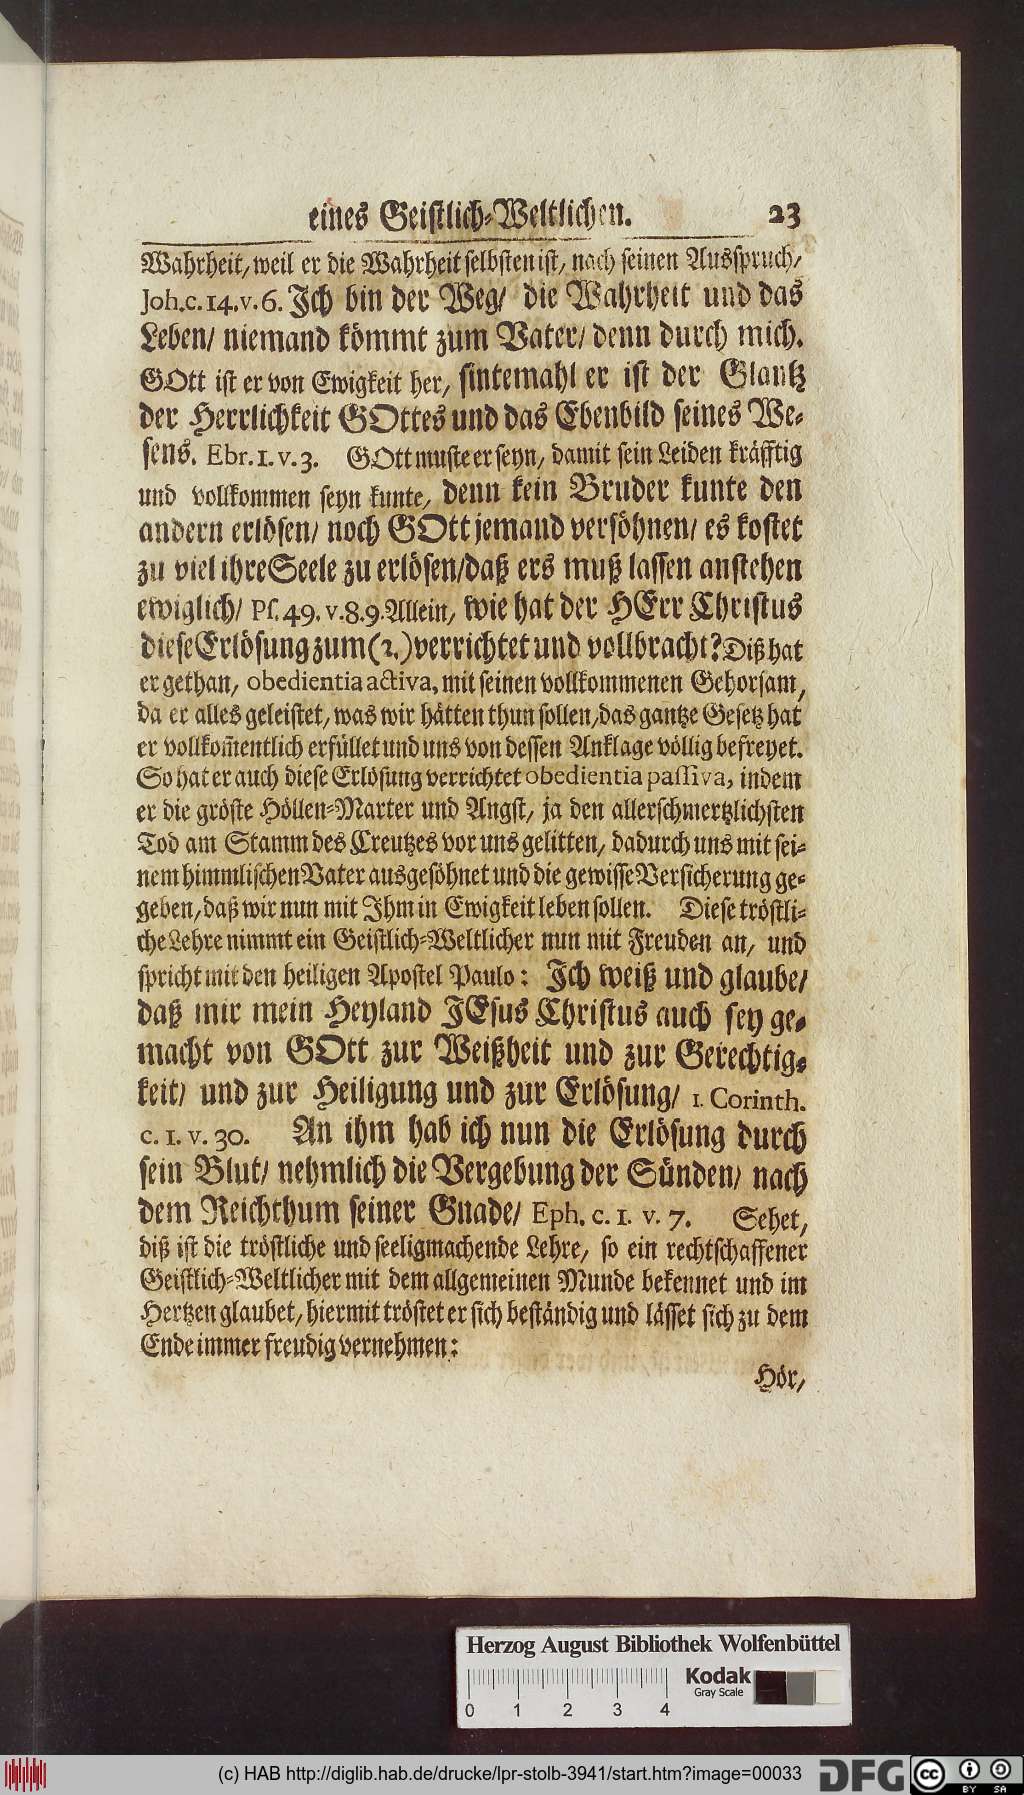 eines Geistlich-Weltlichen. 23
Wahrheit, weil er die Wahrheit selbsten ist, nach seinen Ausspruch/
Joh. c. 14. v. 6. Ich bin der Weg/ die Wahrheit und das
Leben/ niemand kömmt zum Vater/ denn durch mich.
GOtt ist er von Ewigkeit her, sintemahl er ist der Glantz
der Herrlichkeit GOttes und das Ebenbild seines We-
sens. Ebr. 1. v. 3. GOtt muste er seyn, damit sein Leiden kräfftig
und vollkommen seyn kunte, denn kein Bruder kunte den
andern erlösen/ noch GOtt jemand versöhnen/ es kostet
zu viel ihre Seele zu erlösen/ daß ers muß lassen anstehen
ewiglich/ Ps. 49. v. 8. 9. Allein, wie hat der HErr Christus
diese Erlösung zum (2.) verrichtet und vollbracht? Diß hat
er gethan, obedientia activa, mit seinen vollkommenen Gehorsam,
da er alles geleistet, was wir hätten thun sollen, das gantze Gesetz hat
er vollkom̄entlich erfüllet und uns von dessen Anklage völlig befreyet.
So hat er auch diese Erlösung verrichtet obedientia passiva, indem
er die gröste Höllen-Marter und Angst, ja den allerschmertzlichsten
Tod am Stamm des Creutzes vor uns gelitten, dadurch uns mit sei-
nem himmlischen Vater ausgesöhnet und die gewisse Versicherung ge-
geben, daß wir nun mit Ihm in Ewigkeit leben sollen. Diese tröstli-
che Lehre nimmt ein Geistlich-Weltlicher nun mit Freuden an, und
spricht mit den heiligen Apostel Paulo: Ich weiß und glaube/
daß mir mein Heyland JEsus Christus auch sey ge-
macht von GOtt zur Weißheit und zur Gerechtig-
keit/ und zur Heiligung und zur Erlösung/ 1. Corinth.
c. 1. v. 30. An ihm hab ich nun die Erlösung durch
sein Blut/ nehmlich die Vergebung der Sünden/ nach
dem Reichthum seiner Gnade/ Eph. c. 1. v. 7. Sehet,
diß ist die tröstliche und seeligmachende Lehre, so ein rechtschaffener
Geistlich-Weltlicher mit dem allgemeinen Munde bekennet und im
Hertzen glaubet, hiermit tröstet er sich beständig und lässet sich zu dem
Ende immer freudig vernehmen:
Hör/
Herzog August Bibliothek Wolfenbüttel
Kodak
Gray Scale
0 1 2 3 4
(c) HAB http://diglib.hab.de/drucke/lpr-stolb-3941/start.htm?image=00033
DFG
cc BY SA